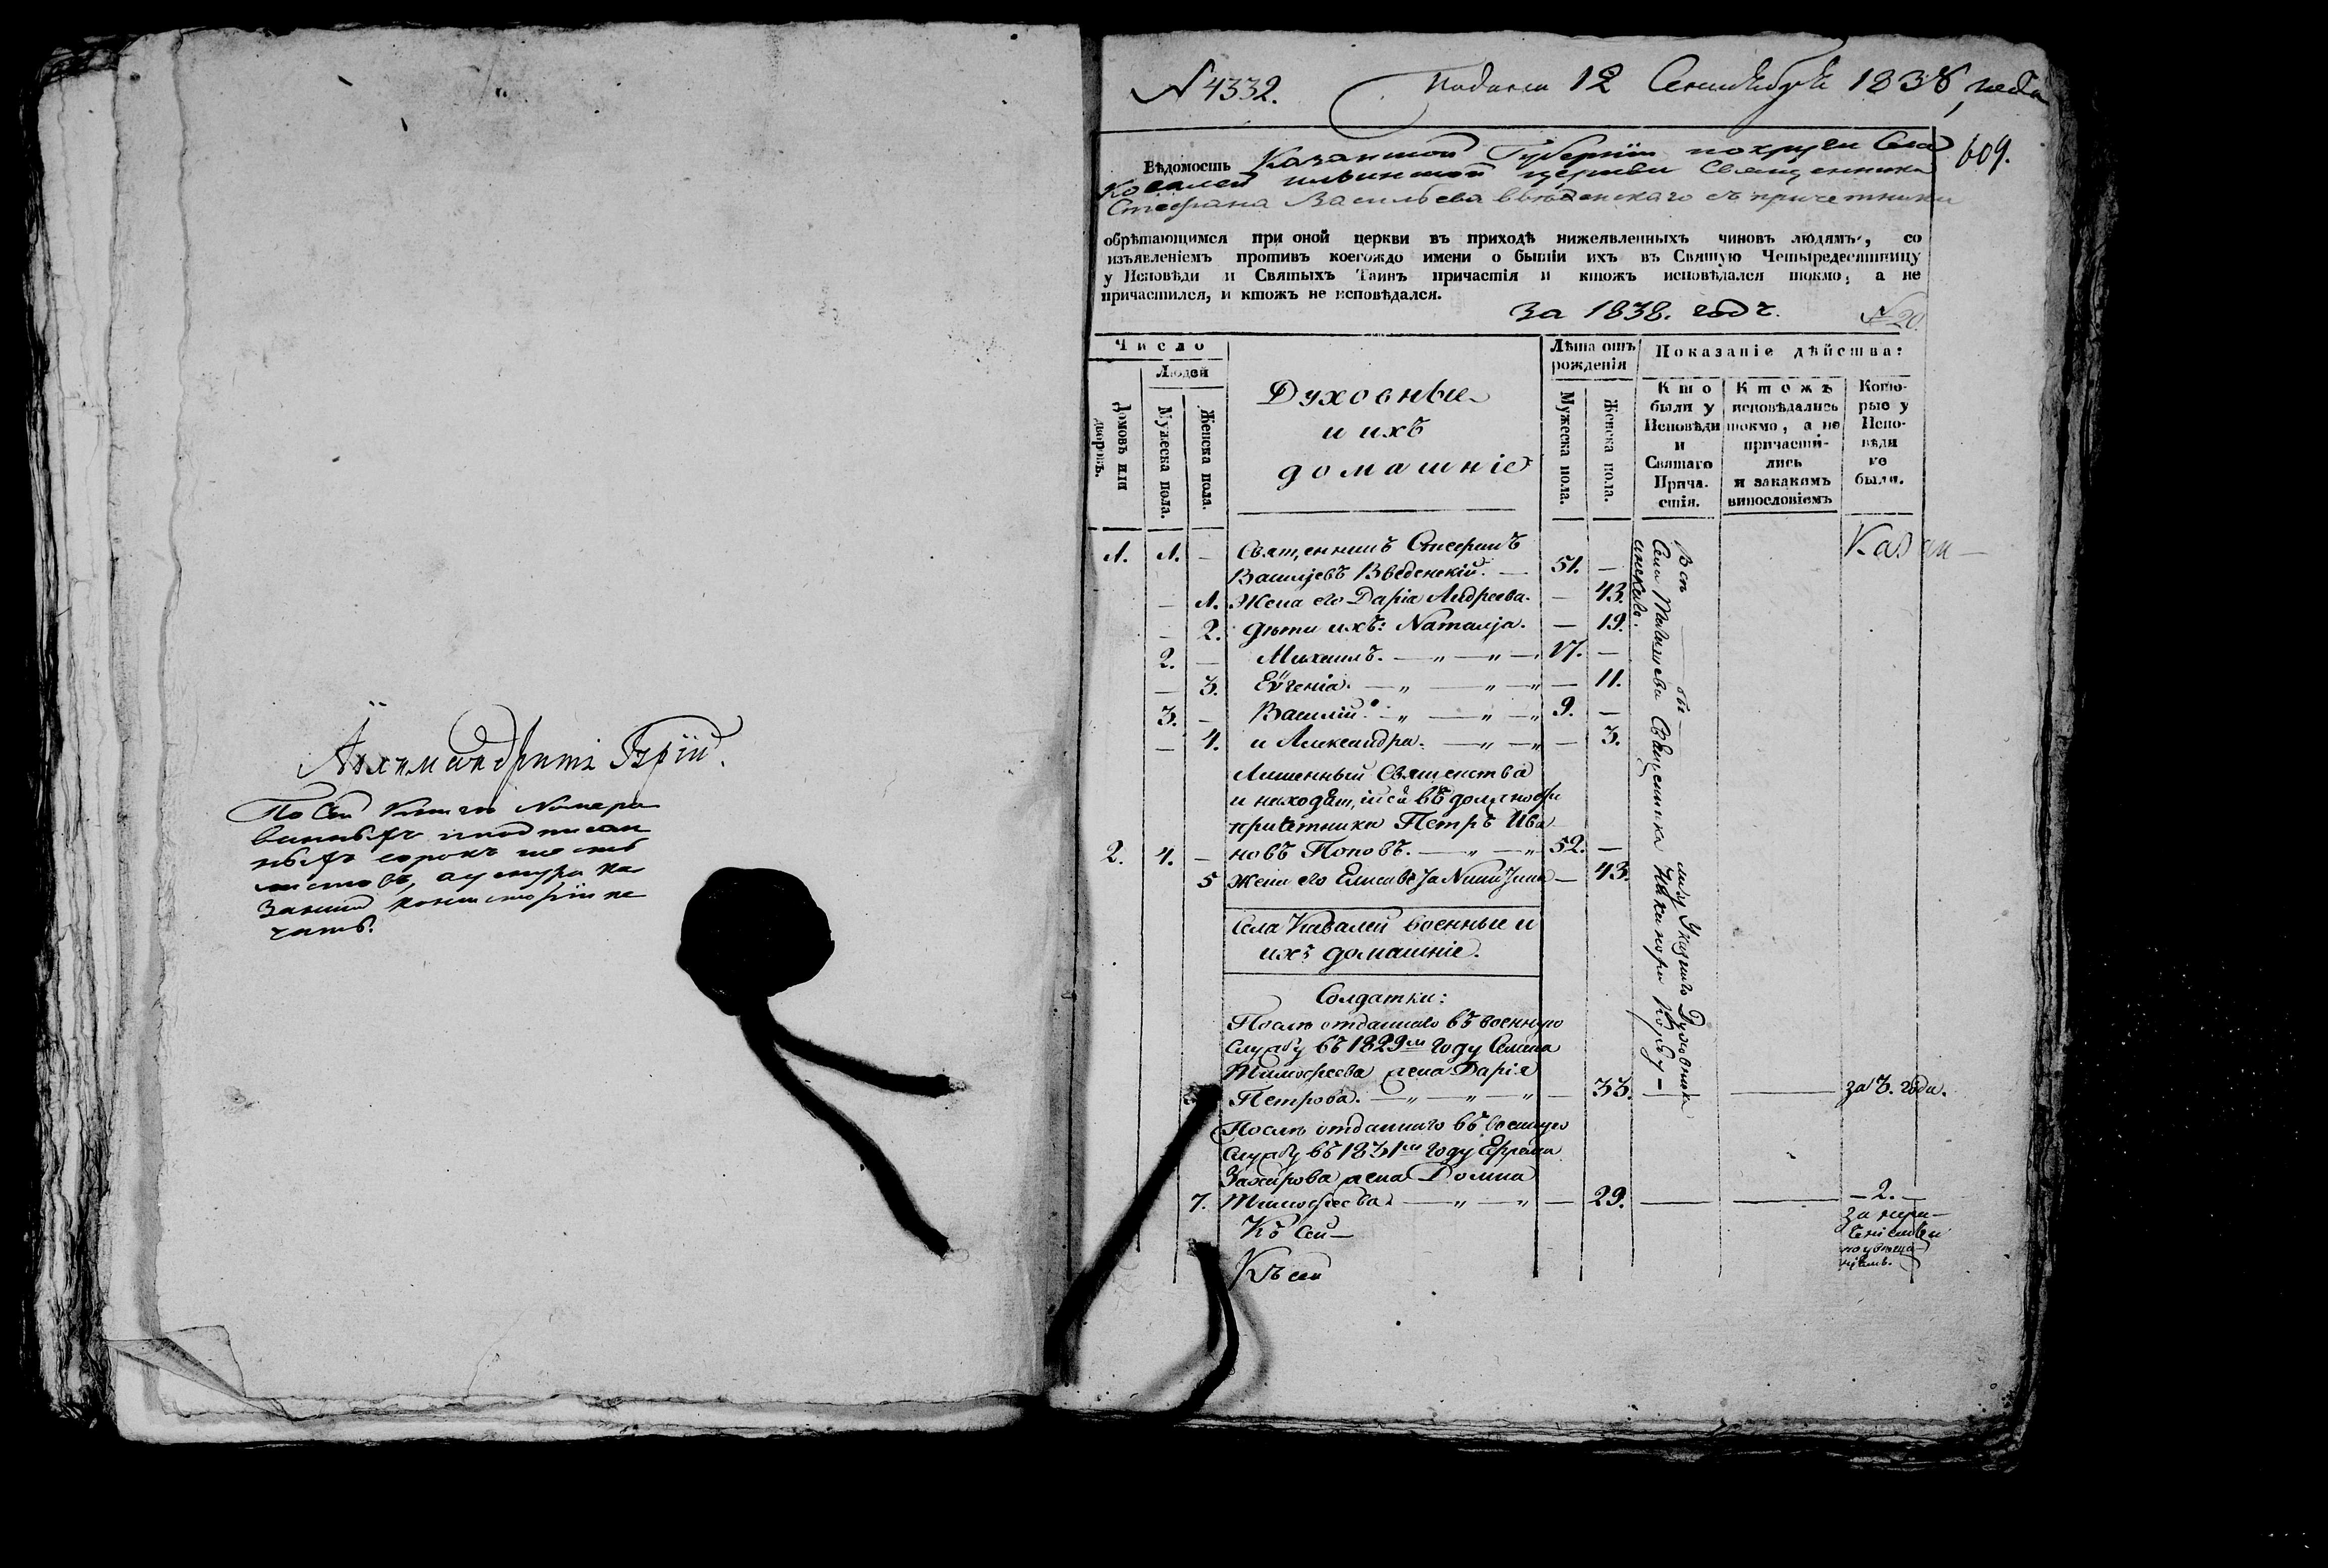 Архимандритъ Гурій.
По сей книгѣ Нумеро
ванныхъ и подписан
ныхъ сорокъ шесть
листовъ, а у шнура Ка
занской консисторіи пе
чать.
№ 4332. Подана 12 Сентября 1838 года
609.
Вѣдомость Казанской Губерніи покруги Села
Ковалей ильинской церкви Священника
Стефана Васильева Введенскаго съ причетники
обрѣтающимся при оной церкви въ приходѣ нижеявленныхъ чиновъ людямъ, со
изъявленіемъ противъ коегождо имени о бытіи ихъ въ Святую Четыредесятницу
у Исповѣди и Святыхъ Таинъ причастія и ктожъ исповѣдался токмо, а не
причастился, и ктожъ не исповѣдался.
За 1838. годъ.
№ 20.
Число
Людей
Домовъ или дворовъ.
Мужеска пола.
Женска пола.
Духовные
и ихъ
домашніе
Лѣта отъ
рожденія
Мужеска пола.
Женска пола.
Показаніе дѣйства:
Кто
были у
Исповѣди
и
Святаго
Прича-
стія.
Ктожъ
исповѣдались
токмо, а не
причасти-
лись
и закакимъ
винословіемъ
Кото-
рые у
Испо-
вѣди
не
были.
1. 1. — Священникъ Стефанъ
Васильевъ Введенскій. — 51. —
— 1. Жена его Дарія Андреева. — 43.
— 2. Дѣти ихъ: Наталія. — 19.
2. — Михаилъ. — „ — „ — 17. —
— 3. Еѵгенія. — „ — „ — „ — 11.
3. — Василій. — „ — „ — „ 9. —
— 4. и Александра. — „ — „ — 3.
Лишенный Священства
и находящійся въ должности
причетника Петръ Ива
2. 4. — новъ Поповъ. — „ — „ 52. —
5 Жена его Елисавета Никитина — 43.
Села Ковалей военные и
ихъ домашніе.
Солдатки:
Послѣ отданнаго въ военную
службу въ 1829м году Семена
Тимофеева жена Дарія
Петрова. — „ — „ — „ — 33. — за 3. года.
Послѣ отданнаго въ военную
службу въ 1831м году Ефрема
Захарова жена Домна
7. Тимофеева. — „ — „ — 29. — — 2. —
Къ сей —
Къ сей
Всѣ — бы — ли у Указнаго Духовника
Села Священника Никифора